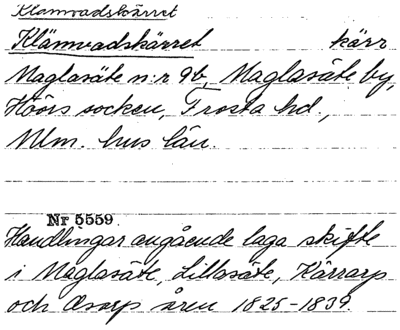 Klämvadskärret
Klämvadskärret kärr
Maglasäte n:r 9b, Maglasäte by,
Höörs socken, Frosta hd.,
Mlm. hus län.
Nr 5559
Handlingar angående laga skifte
i Maglasäte, Lillasäte, Kärrarp
och Osarp åren 1825-1839.